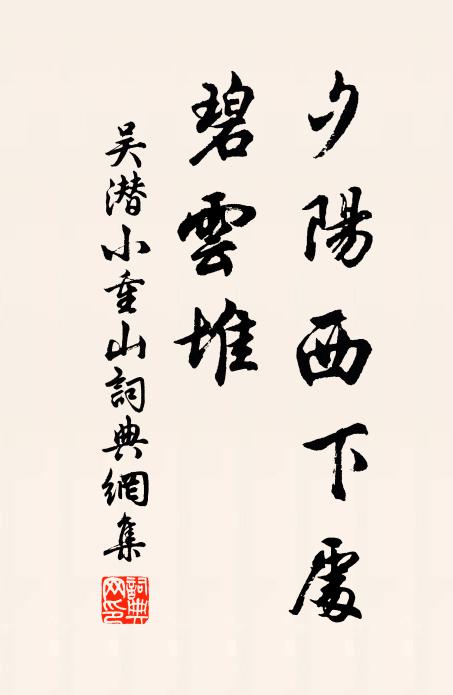 夕陽西下處
碧雲堆
吴潛小重山詞典網集
詞典网印